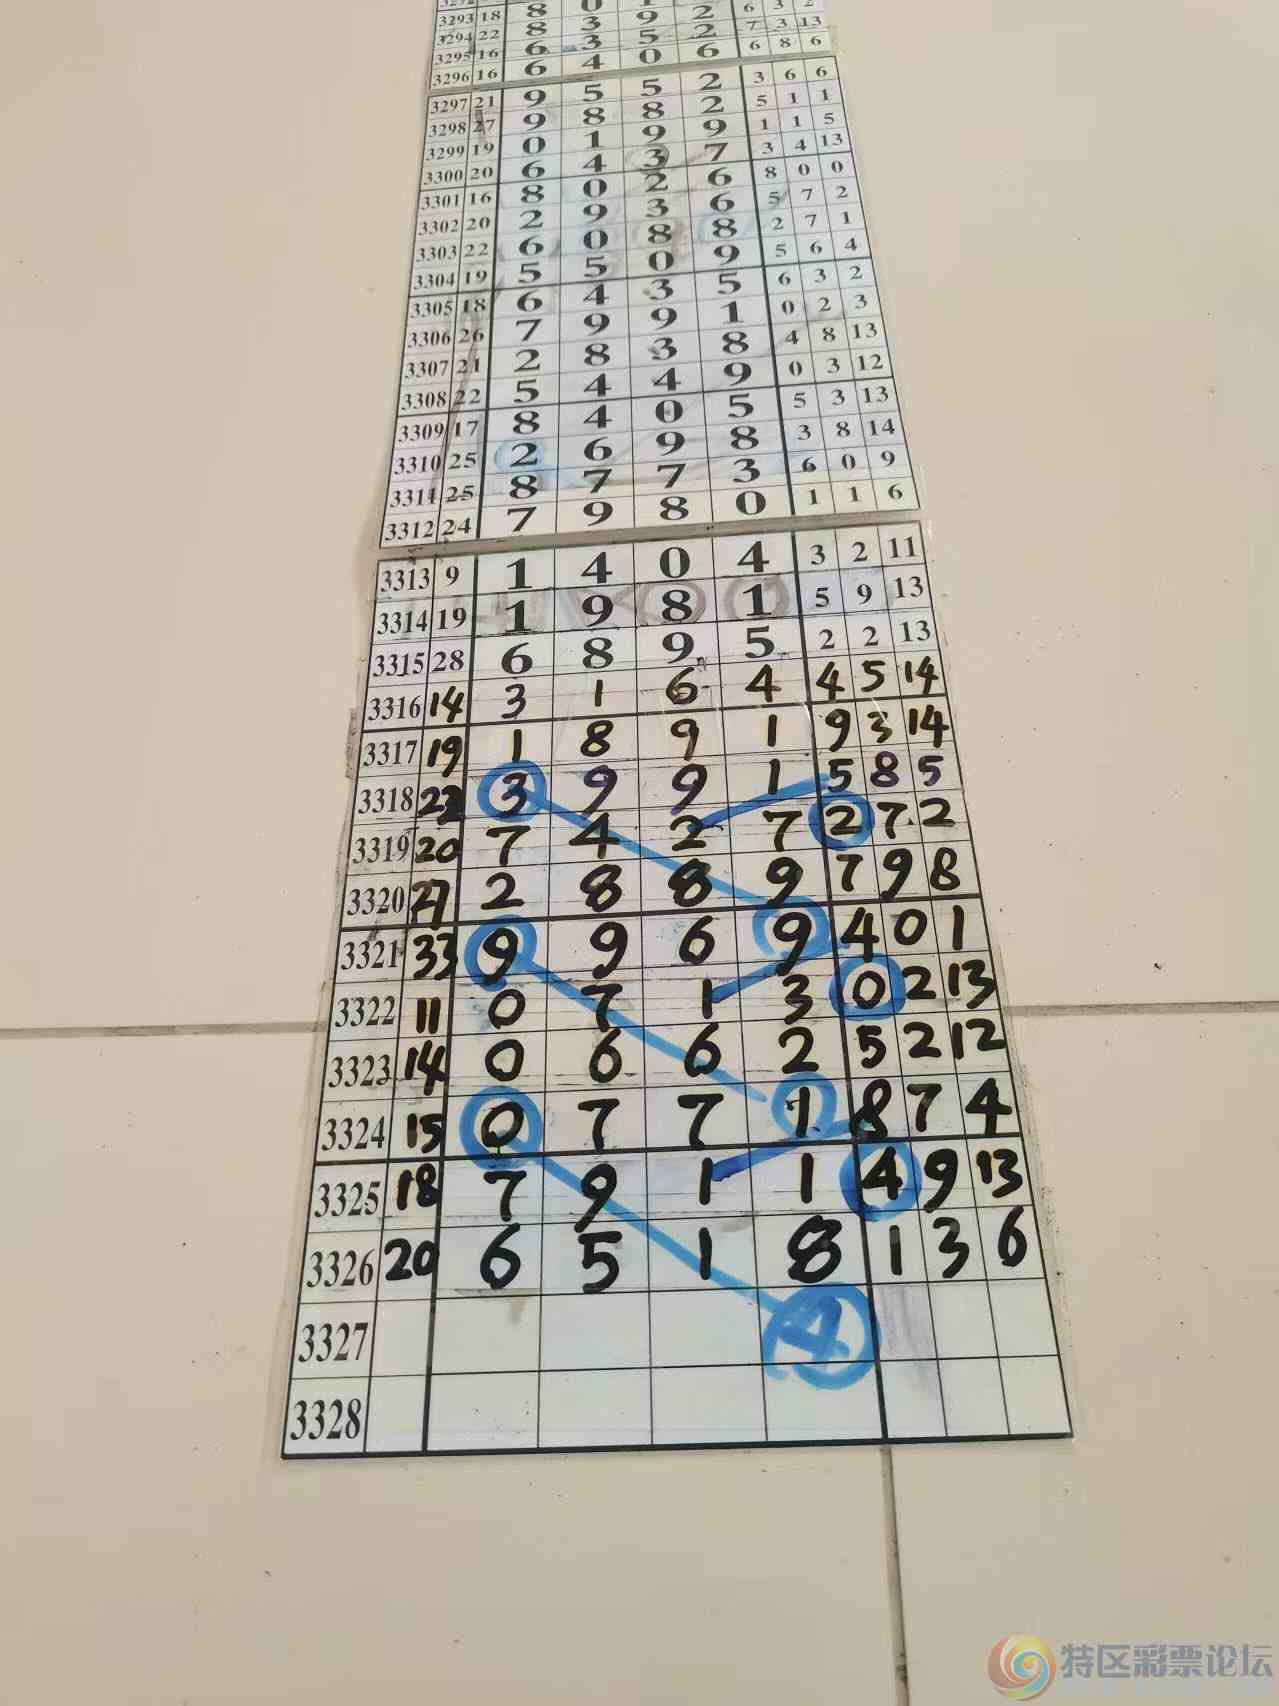 3293 18 8 0 1 6 3 2
3294 22 8 3 9 2 7 3 13
3295 16 6 3 5 2 6 8 6
3296 16 6 4 0 6
3297 21 9 5 5 2 3 6 6
3298 27 9 8 8 2 5 1 1
3299 19 0 1 9 9 1 1 5
3300 20 6 4 3 7 3 4 13
3301 16 8 0 2 6 8 0 0
3302 20 2 9 3 6 5 7 2
3303 22 6 0 8 8 2 7 1
3304 19 5 5 0 9 5 6 4
3305 18 6 4 3 5 6 3 2
3306 26 7 9 9 1 0 2 3
3307 21 2 8 3 8 4 8 13
3308 22 5 4 4 9 0 3 12
3309 17 8 4 0 5 5 3 13
3310 25 2 6 9 8 3 8 14
3311 25 8 7 7 3 6 0 9
3312 24 7 9 8 0 1 1 6
3313 9 1 4 0 4 3 2 11
3314 19 1 9 8 1 5 9 13
3315 28 6 8 9 5 2 2 13
3316 14 3 1 6 4 4 5 14
3317 19 1 8 9 1 9 3 14
3318 22 3 9 9 1 5 8 5
3319 20 7 4 2 7 2 7 2
3320 27 2 8 8 9 7 9 8
3321 33 9 9 6 9 4 0 1
3322 11 0 7 1 3 0 2 13
3323 14 0 6 6 2 5 2 12
3324 15 0 7 7 1 8 7 4
3325 18 7 9 1 1 4 9 13
3326 20 6 5 1 8 1 3 6
3327 4
3328
特区彩票论坛